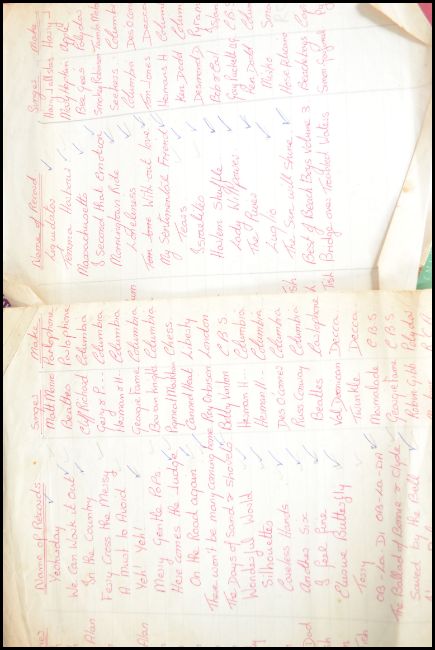 Name of Records Singer Make
Yesterday Matt Monro Parlophone
We Can Work it Out Beatles Parlophone
In the Country Cliff Richard Columbia
Alan Ferry Cross the Mersey Gerry & P... Columbia
A Must to Avoid Herman & H Columbia
Alan Yeh! Yeh! Georgie Fame Columbia
Merry Gentle Pops Barron Knights Columbia
Here comes the Judge Pigmeat Markham Chess
On the Road again Canned Heat Liberty
There won't be many coming home Roy Orbison London
The Days of Sand & Shovels Bobby Vinton C.B.S.
Wonderful World Herman H... Columbia
Silhouettes Herman H... Columbia
Careless Hands Des O'Connor Columbia
Dad Another Six Russ Conway Columbia
I feel fine Beatles Parlophone
Elusive Butterfly Val Doonican Decca
Terry Twinkle Decca
OB-LA-DI OB-LA-DA Marmalade C.B.S
The Ballad of Bonnie & Clyde Georgie Fame C.B.S.
Saved by the Bell Robin Gibb Polydor
Name of Record Singer Make
Liquidator Harry J Allstars Harry J
Terena Harbour Mary Hopkin Apple
Massachusetts Bee Gees Polydor
I second that Emotion Smokey Robinson
Morningtown Ride Seekers Columbia
Loneliness Des O'Connor Columbia
With out love Tom Jones Decca
My Sentimental Friend Hermans H Columbia
Tears Ken Dodd Columbia
Israelites Desmond D Pyramid
Harlem Shuffle Bob & Earl
Lady Willpower Gary Puckett C.B.S
The River Ken Dodd Columbia
Lug/o
The Sun will Shine
Best of Beach Boys Volume 3 Beach Boys
Bridge over Troubled Waters